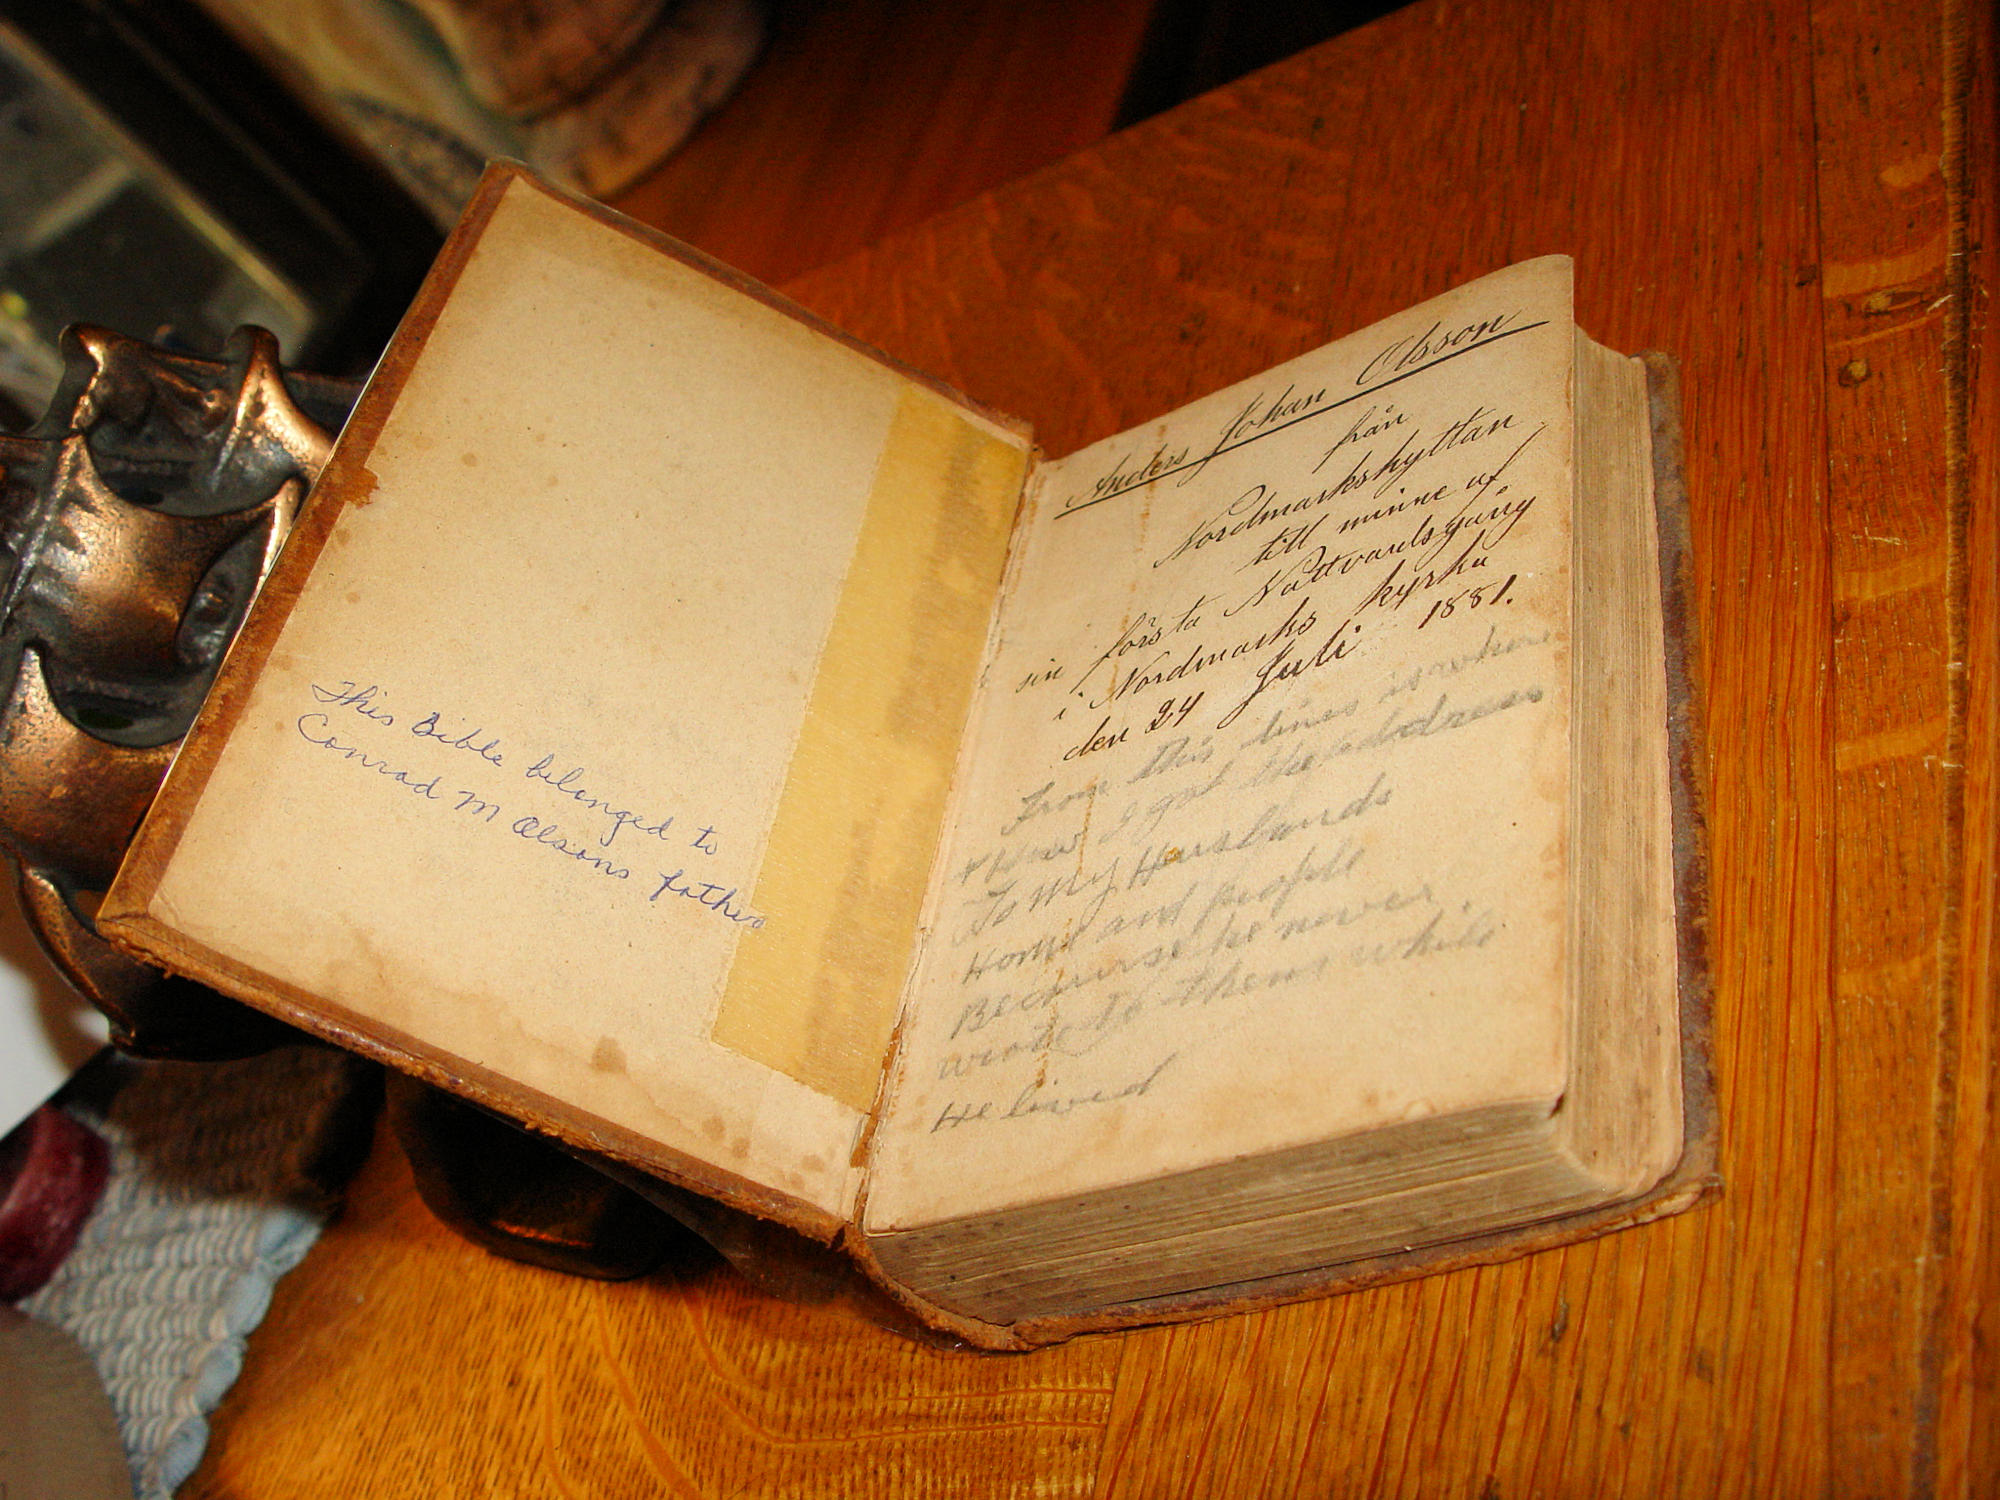 This Bible belonged to
Conrad M Olsons father
Anders Johan Olsson
från
Nordmarkshyttan
till minne af
sin första Nattvardsgång
i Nordmarks kyrka
den 24 Juli 1881.
From this lines is where
+ How I got the address
To My Husbands
Home and people
Becaurse he never
wrote to them while
He lived